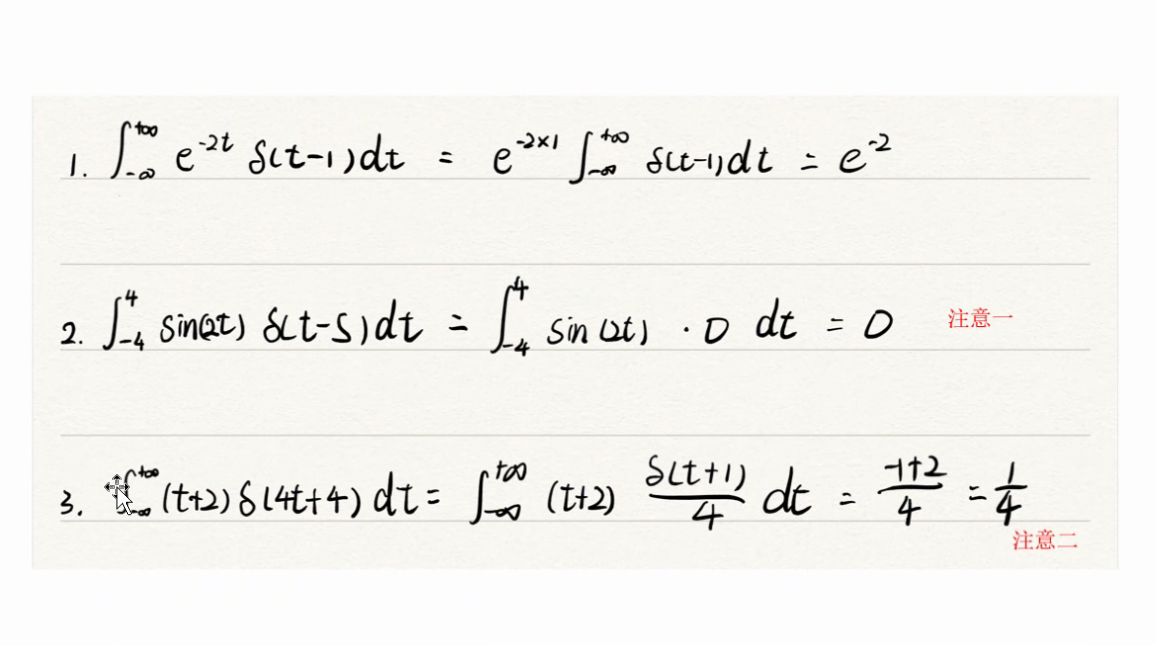 1. ∫_{-∞}^{+∞} e^{-2t} δ(t-1)dt = e^{-2×1} ∫_{-∞}^{+∞} δ(t-1)dt = e^{-2}
2. ∫_{-4}^{4} sin(2t) δ(t-5)dt = ∫_{-4}^{4} sin(2t) · 0 dt = 0 注意一
3. ∫_{-∞}^{+∞} (t+2) δ(4t+4) dt = ∫_{-∞}^{+∞} (t+2) δ(t+1)/4 dt = (-1+2)/4 = 1/4
注意二